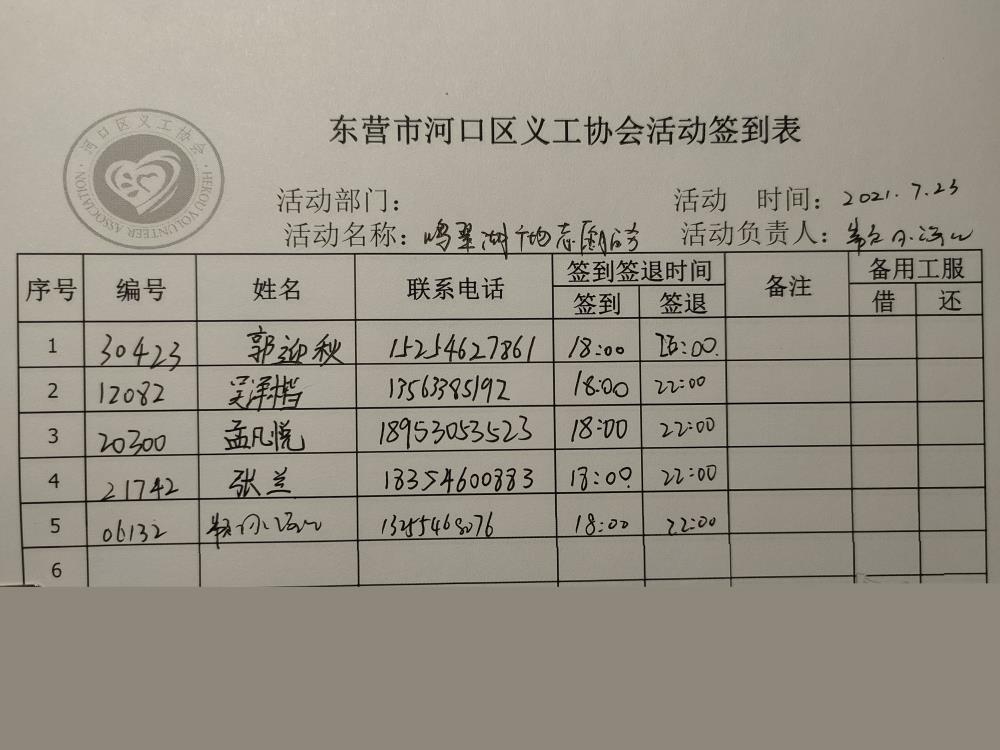 河口区义工协会
HEKOU VOLUNTEER ASSOCIATION
东营市河口区义工协会活动签到表
活动部门：
活动 时间：2021.7.23
活动名称：鸣翠湖
活动负责人：
序号 编号 姓名 联系电话 签到签退时间 备注 备用工服
签到 签退 借 还
1 30423 郭迎秋 15254627861 18:00
2 12082 13563385192 18:00 22:00
3 20300 孟凡悦 18953053523 18:00 22:00
4 21742 张兰 18354600883 18:00 22:00
5 06132 18:00 22:00
6